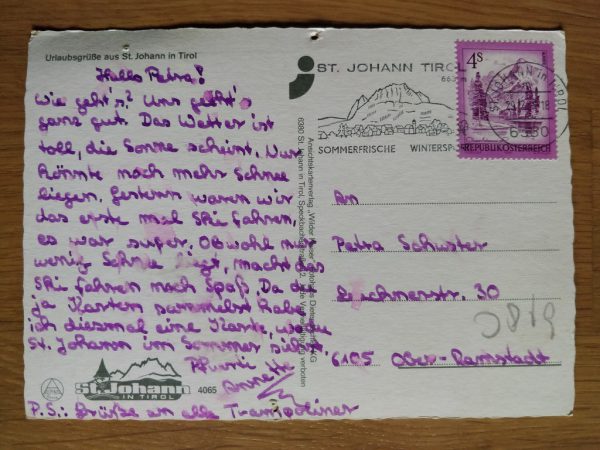 Urlaubsgrüße aus St. Johann in Tirol
Hallo Petra!
Wie geht's? Uns geht's
ganz gut. Das Wetter ist
toll, die Sonne scheint. Nur
könnte noch mehr Schnee
liegen. Gestern waren wir
das erste mal Ski fahren,
es war super. Obwohl nur
wenig Schnee liegt, macht das
Ski fahren noch Spaß. Da du
ja Karten sammelst habe
ich diesmal eine Karte, wo du
St. Johann im Sommer siehst.
Pfiurti
Annette
P.S.: Grüße an alle Trampoliner
St. Johann
IN TIROL
4065
Ansichtskartenverlag „Wilder
6380 St. Johann in Tirol, Speckbacherstraße
verboten
ST. JOHANN TIROL
SOMMERFRISCHE WINTERSP
4S
REPUBLIK ÖSTERREICH
ST. JOHANN IN TIROL
6380
An
Petra Schuster
30
6105 Ober-Ramstadt
0819